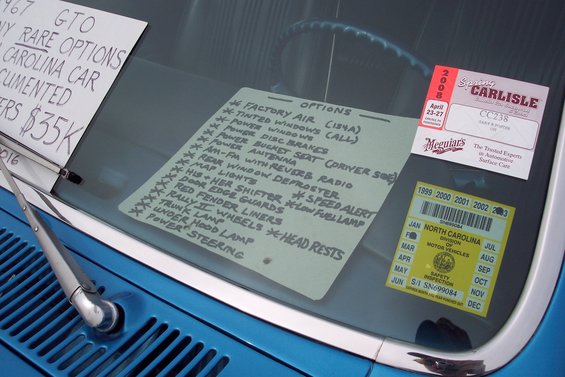 1967 GTO
NY RARE OPTIONS
CAROLINA CAR
CUMENTED
ERS $35K
2016
OPTIONS
* FACTORY AIR (184A)
* TINTED WINDOWS (ALL)
* POWER WINDOWS
* POWER DISC BRAKES
* POWER BUCKET SEAT (DRIVER SIDE)
* POWER ANTENNA
* AM-FM WITH REVERB RADIO
* REAR WINDOW DEFROSTER
* LIGHTER * SPEED ALERT
* HIS + HER SHIFTER * LOW FUEL LAMP
* DOOR EDGE GUARDS
* RED FENDER LINERS
* RALLY II WHEELS
* TRUNK LAMP * HEAD RESTS
* UNDER HOOD LAMP
* POWER STEERING
2008
April
23-27
Spring
CARLISLE
CC238
Meguiar's
The Trusted Experts
in Automotive
Surface Care
1999 2000 2001 2002 2003
NORTH CAROLINA
DIVISION OF
MOTOR VEHICLES
SAFETY
INSPECTION
JAN JUL
FEB AUG
MAR SEP
APR OCT
MAY NOV
JUN DEC
S/1 SN699084